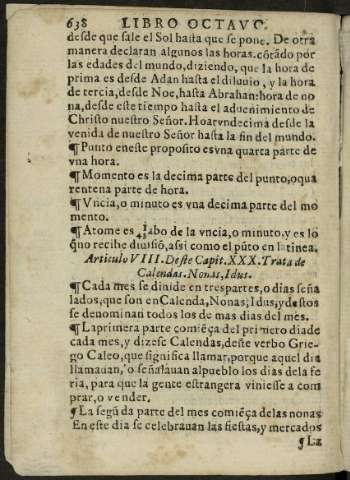 638 LIBRO OCTAVO.
desde que sale el Sol hasta que se pone. De otra
manera declaran algunos las horas. cõtãdo por
las edades del mundo, diziendo, que la hora de
prima es desde Adan hasta el diluuio, y la hora
de tercia, desde Noe, hasta Abrahan: hora de no
na, desde este tiempo hasta el aduenimiento de
Christo nuestro Señor. Hora vndecima desde la
venida de nuestro Señor hasta la fin del mundo.
¶ Punto eneste proposito es vna quarta parte de
vna hora.
¶ Momento es la decima parte del punto, oqua
rentena parte de hora.
¶ Vncia, o minuto es vna decima parte del mo
mento.
¶ Atome es abo de la vncia, o minuto, y es lo
q̃no recibe diuisiõ, assi como el pũto en latinea.
Articulo VIII. Deste Capit. XXX. Trata de
Calendas. Nonas, Idus.
¶ Cada mes se diuide en trespartes, o dias seña
lados, que son en Calenda, Nonas, Idus, y destos
se denominan todos los de mas dias del mes.
¶ Laprimera parte comiẽça del primero diade
cada mes, y dizese Calendas, deste verbo Grie-
go Caleo, que significa llamar, porque aquel dia
llamauan, o señalauan alpueblo los dias dela fe
ria, para que la gente estrangera viniesse a com
prar, o vender.
¶ La segũda parte del mes comiẽça delas nonas
En este dia se celebrauan las fiestas, y mercados
¶ La